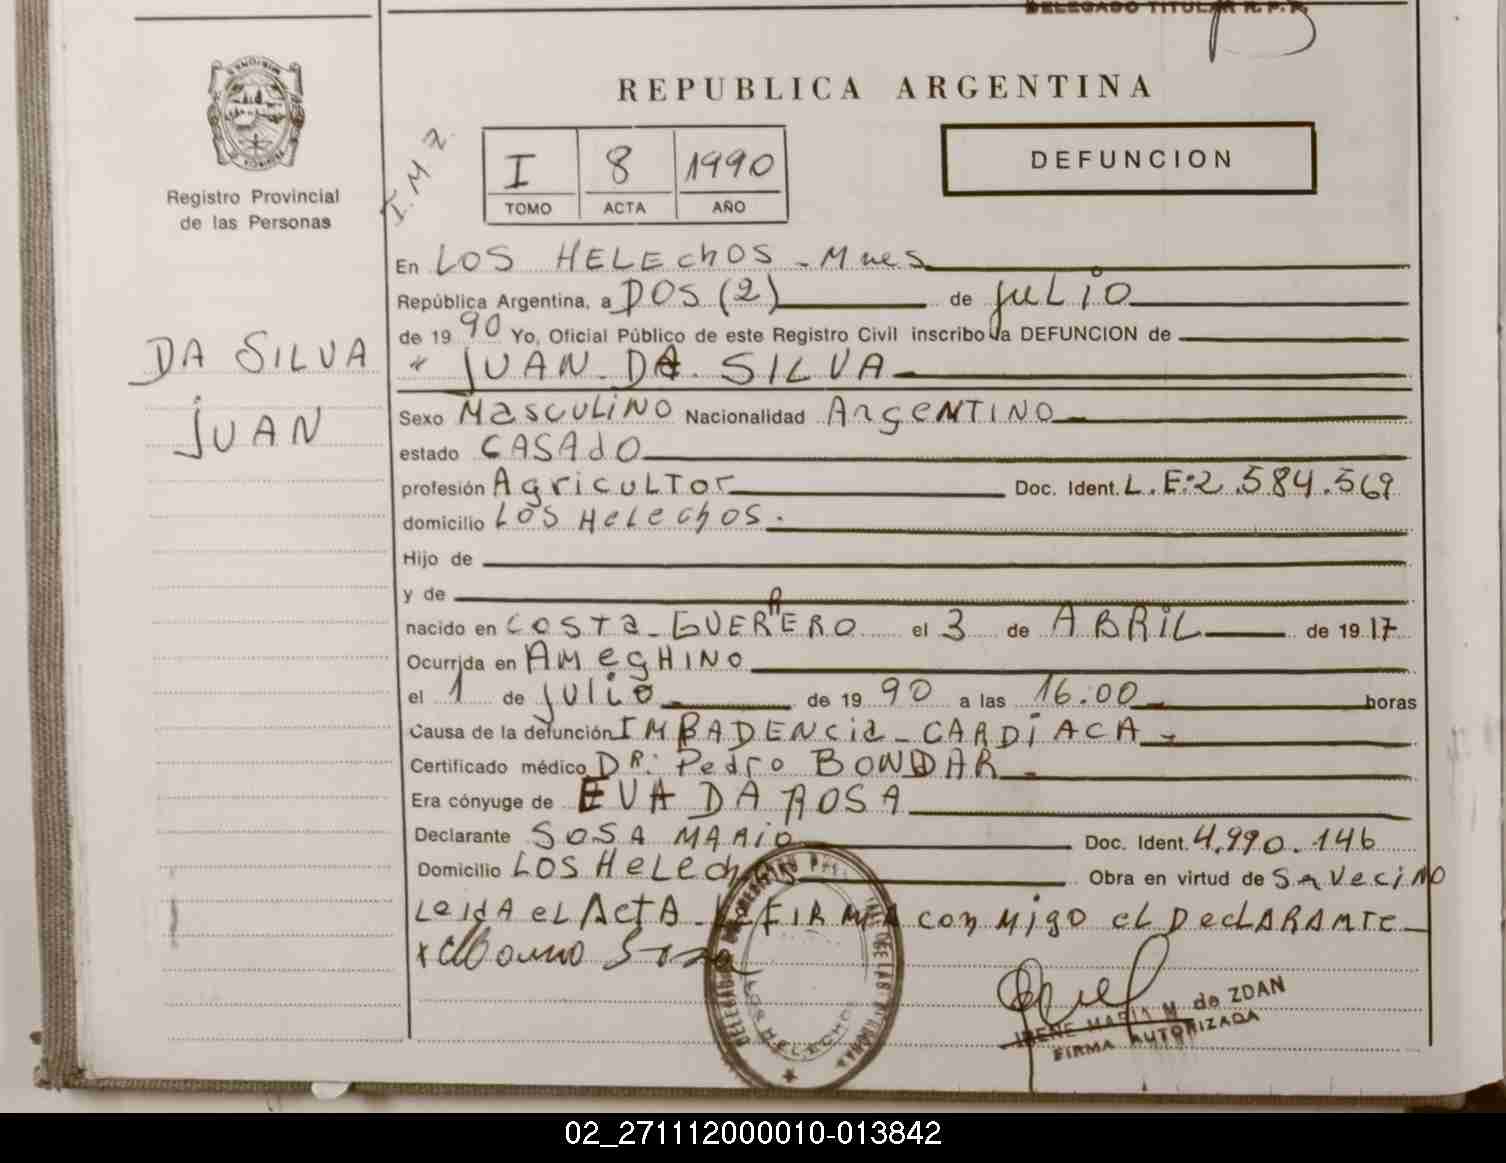 DELEGADO TITULAR R.P.P.
REPUBLICA ARGENTINA
I 8 1990
TOMO ACTA AÑO
DEFUNCION
I.M.Z.
Registro Provincial
de las Personas
DA SILVA
JUAN
En LOS HELECHOS - Mnes
República Argentina, a DOS (2) de juLiO
de 1990 Yo, Oficial Público de este Registro Civil inscribo la DEFUNCION de
* JUAN - DA. SILVA
Sexo MASCULINO Nacionalidad ArgENTINO
estado CASAdO
profesión AgricuLTor Doc. Ident. L.E:2.584.569
domicilio LOS HeLechos.
Hijo de
y de
nacido en COSTA - GUERRERO el 3 de ABRiL de 1917
Ocurrida en AMegHINO
el 1 de juLiO de 1990 a las 16.00 horas
Causa de la defunción IMBADENCia - CARDiACA
Certificado médico DR: Pedro BONDAR
Era cónyuge de EVA DA ROSA
Declarante SOSA MARiO Doc. Ident. 4.990.146
Domicilio LOS HeLechos Obra en virtud de Ser VeciNO
LeidA eL ActA - LE FIRMA con Migo eL DecLARANTE
Sosa
LOS HELECHOS
IRENE MARIA M. de ZDAN
FIRMA AUTORIZADA
02_271112000010-013842